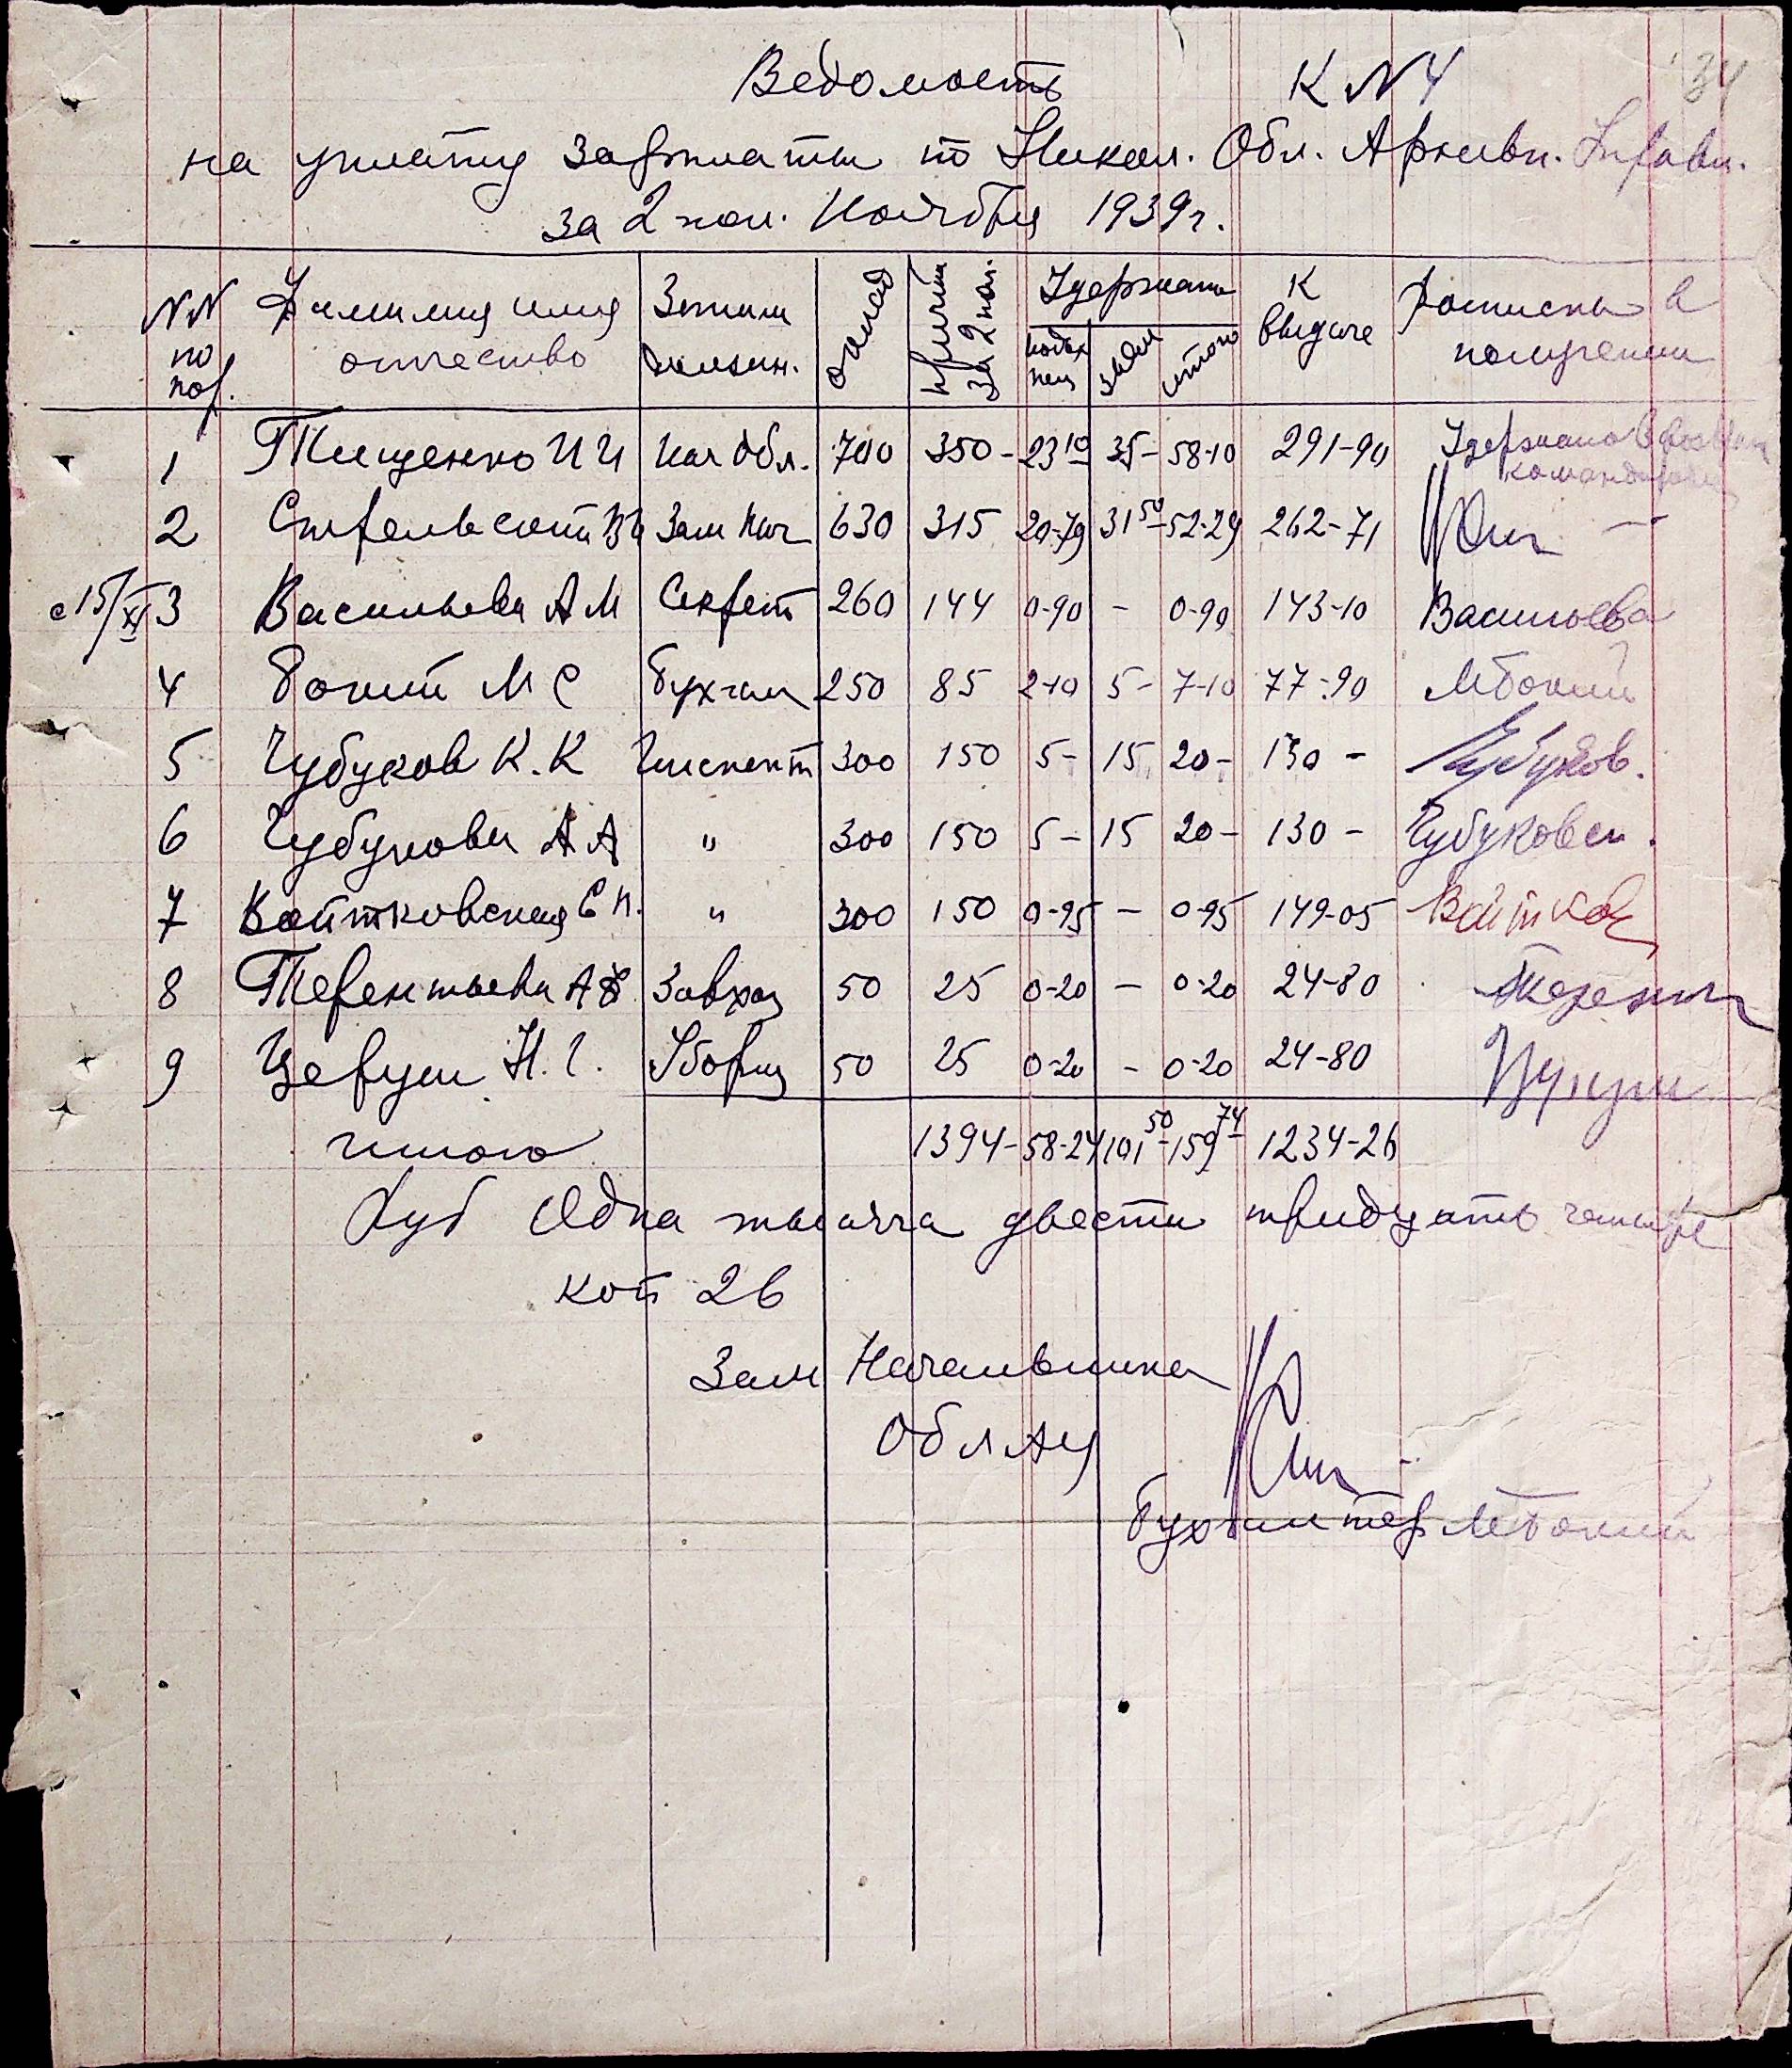 34
Ведомость К №4
на уплату зарплаты по Никол. Обл. Архивн. Управл.
за 2 пол. Ноября 1939 г.
NN по пор. Фамилия имя отчество Заним должн. оклад причит за 2 пол. Удержать К выдаче Росписка в получении
подох нал заем итого
1 Тищенко И И Нач Обл. 700 350- 23 10 35- 58-10 291-90 Удержано в командировки
2 Зам Нач 630 315 20-79 31 50 - 52-29 262-71
с 15/XI 3 Васильева А М Секрет 260 144 0-90 - 0-90 143-10 Васильева
4 Бокий М С Бухгал 250 85 2-10 5- 7-10 77-90 МБокий
5 Чубуков К. К Инспект 300 150 5- 15 20- 130 - Чубуков.
6 Чубукова А А " 300 150 5- 15 20- 130 - Чубукова.
7 Войтковская Е П. " 300 150 0-95 - 0-95 149-05 Войтков
8 Терентьева А Завхоз 50 25 0-20 - 0-20 24-80
9 Н. Г. Уборщ 50 25 0-20 - 0-20 24-80
Итого 1394- 58-24 101 50 - 159 74 1234-26
Руб Одна тысяча двести тридцать четыре
коп 26
Зам Начальника
Обл АУ
Бухгалтер МБокий